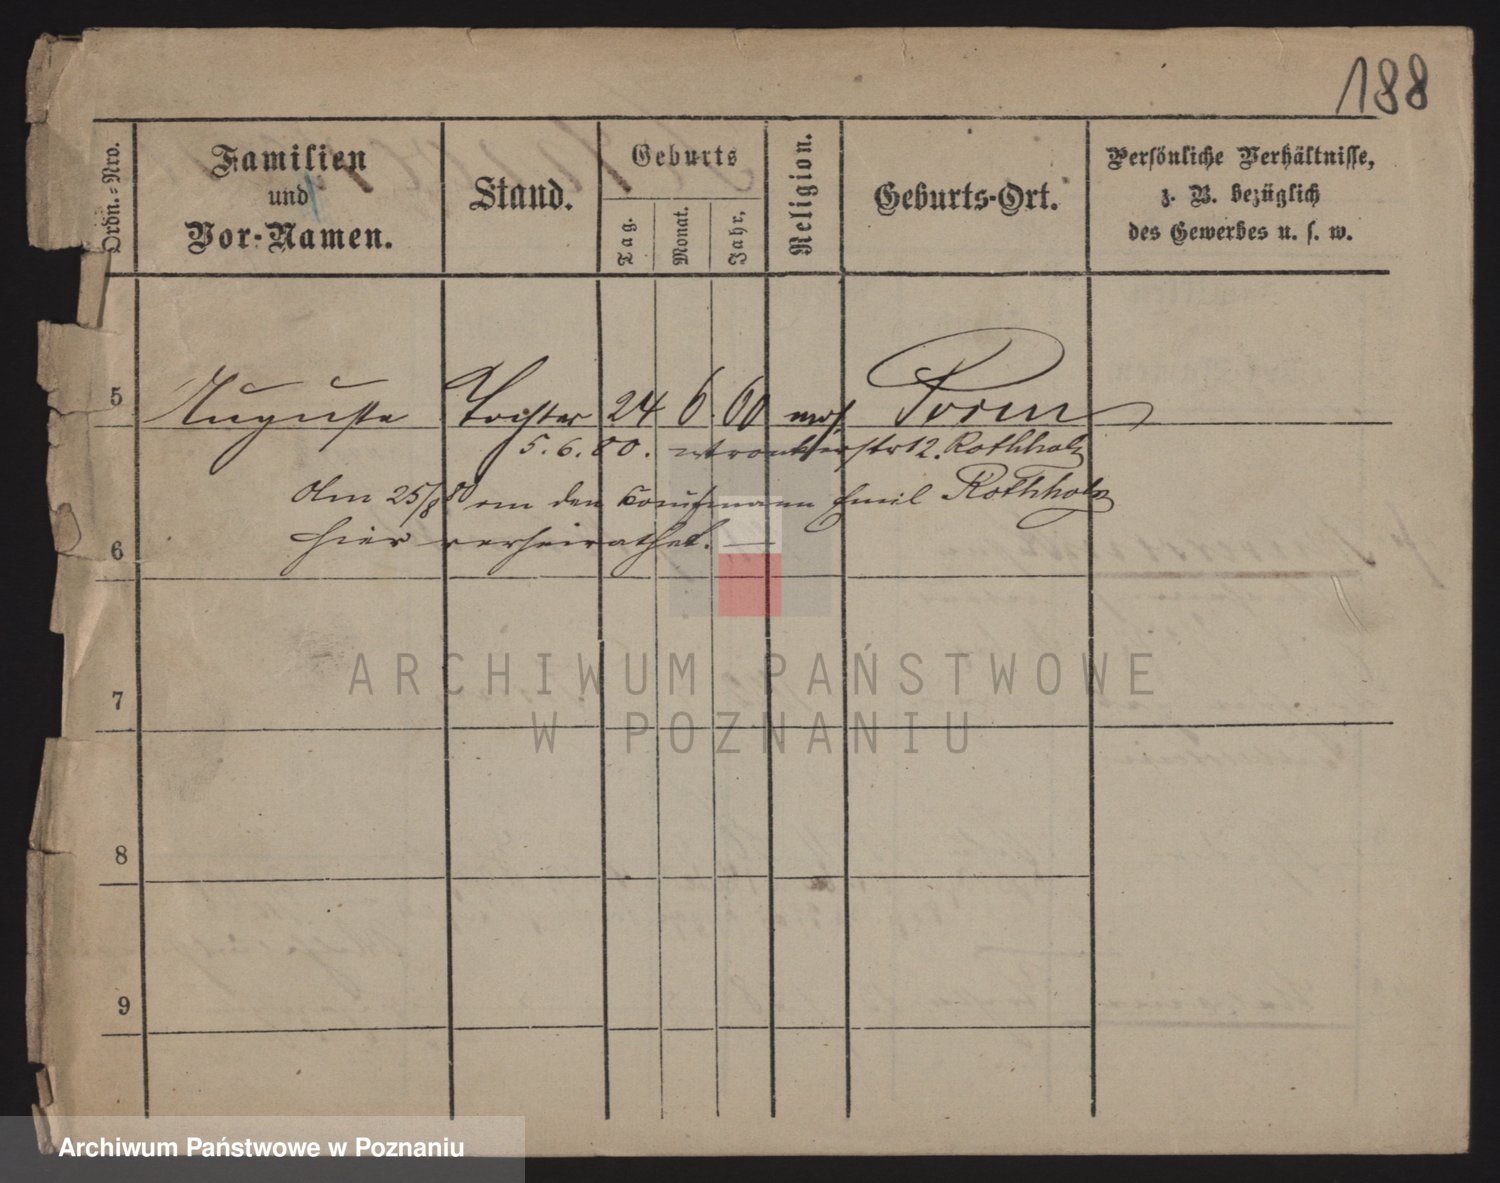 188
Ordn.=Nro.
Familien
und
Vor-Namen.
Stand.
Geburts
Tag.
Monat.
Jahr.
Religion.
Geburts-Ort.
Persönliche Verhältnisse,
z. B. bezüglich
des Gewerbes u. s. w.
5 Auguste Tochter 24 6 60 mos Posen
5. 6. 80. Wronkerstr 12. Rothholz
6
Am 25/8 80 an den Kaufmann Emil Rothholz
hier verheirathet. —
7
8
9
ARCHIWUM PAŃSTWOWE
W POZNANIU
Archiwum Państwowe w Poznaniu